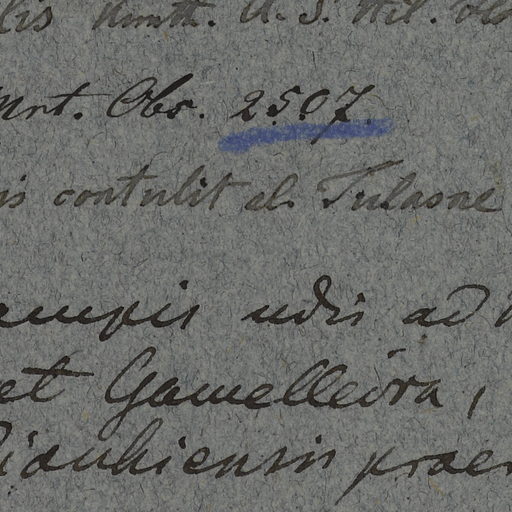 lis Kunth. A. S. Hil.
Mrt. Obs. 2507.
is contulit cl. Tulasne
campis udis ad
et Gamelleira,
Piauhiensis praer